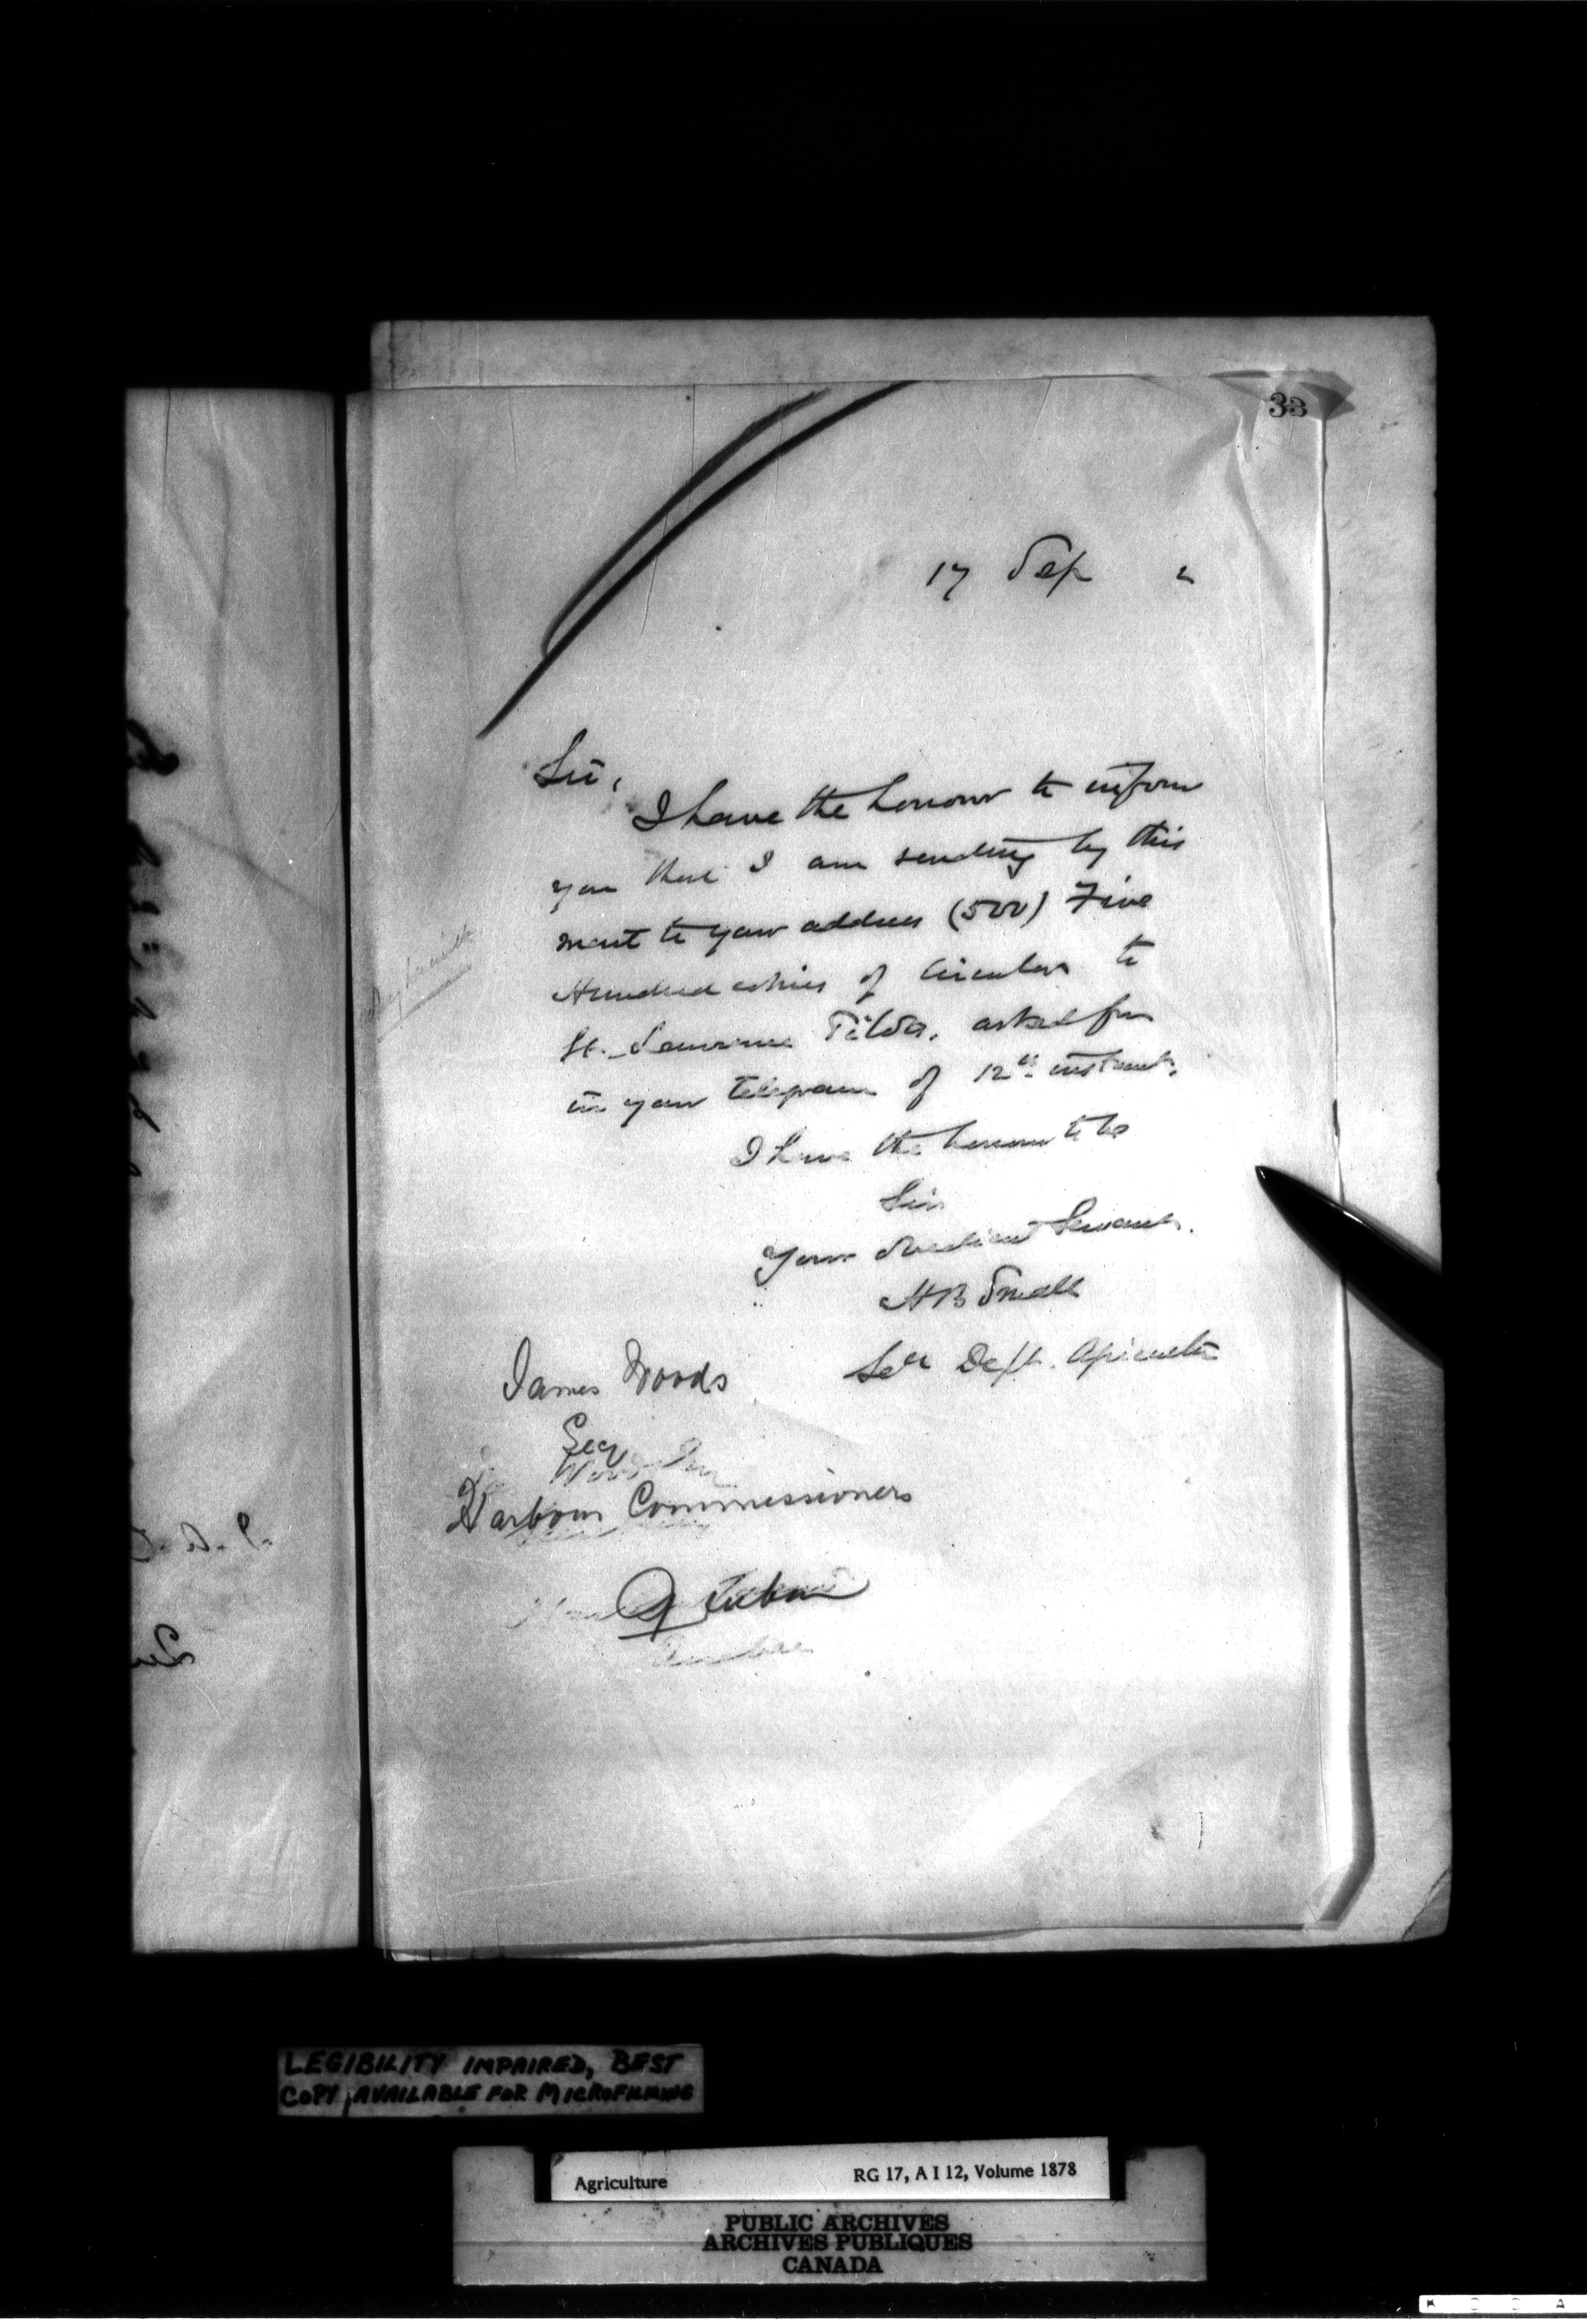 33
17 Sep 2
Sir,
I have the honour to inform
you that I am sending by this
mail to your address (500) Five
Hundred copies of Circular to
St. Lawrence Pilots, asked for
in your telegram of 12th instant.
I have the honour to be
Sir
Your obedient Servant.
H B Small
Sec Dept. Agriculture
James Woods
Secy
Harbour Commissioners
Quebec
Quebec
LEGIBILITY IMPAIRED, BEST
COPY AVAILABLE FOR MICROFILMING
Agriculture RG 17, A I 12, Volume 1878
PUBLIC ARCHIVES
ARCHIVES PUBLIQUES
CANADA